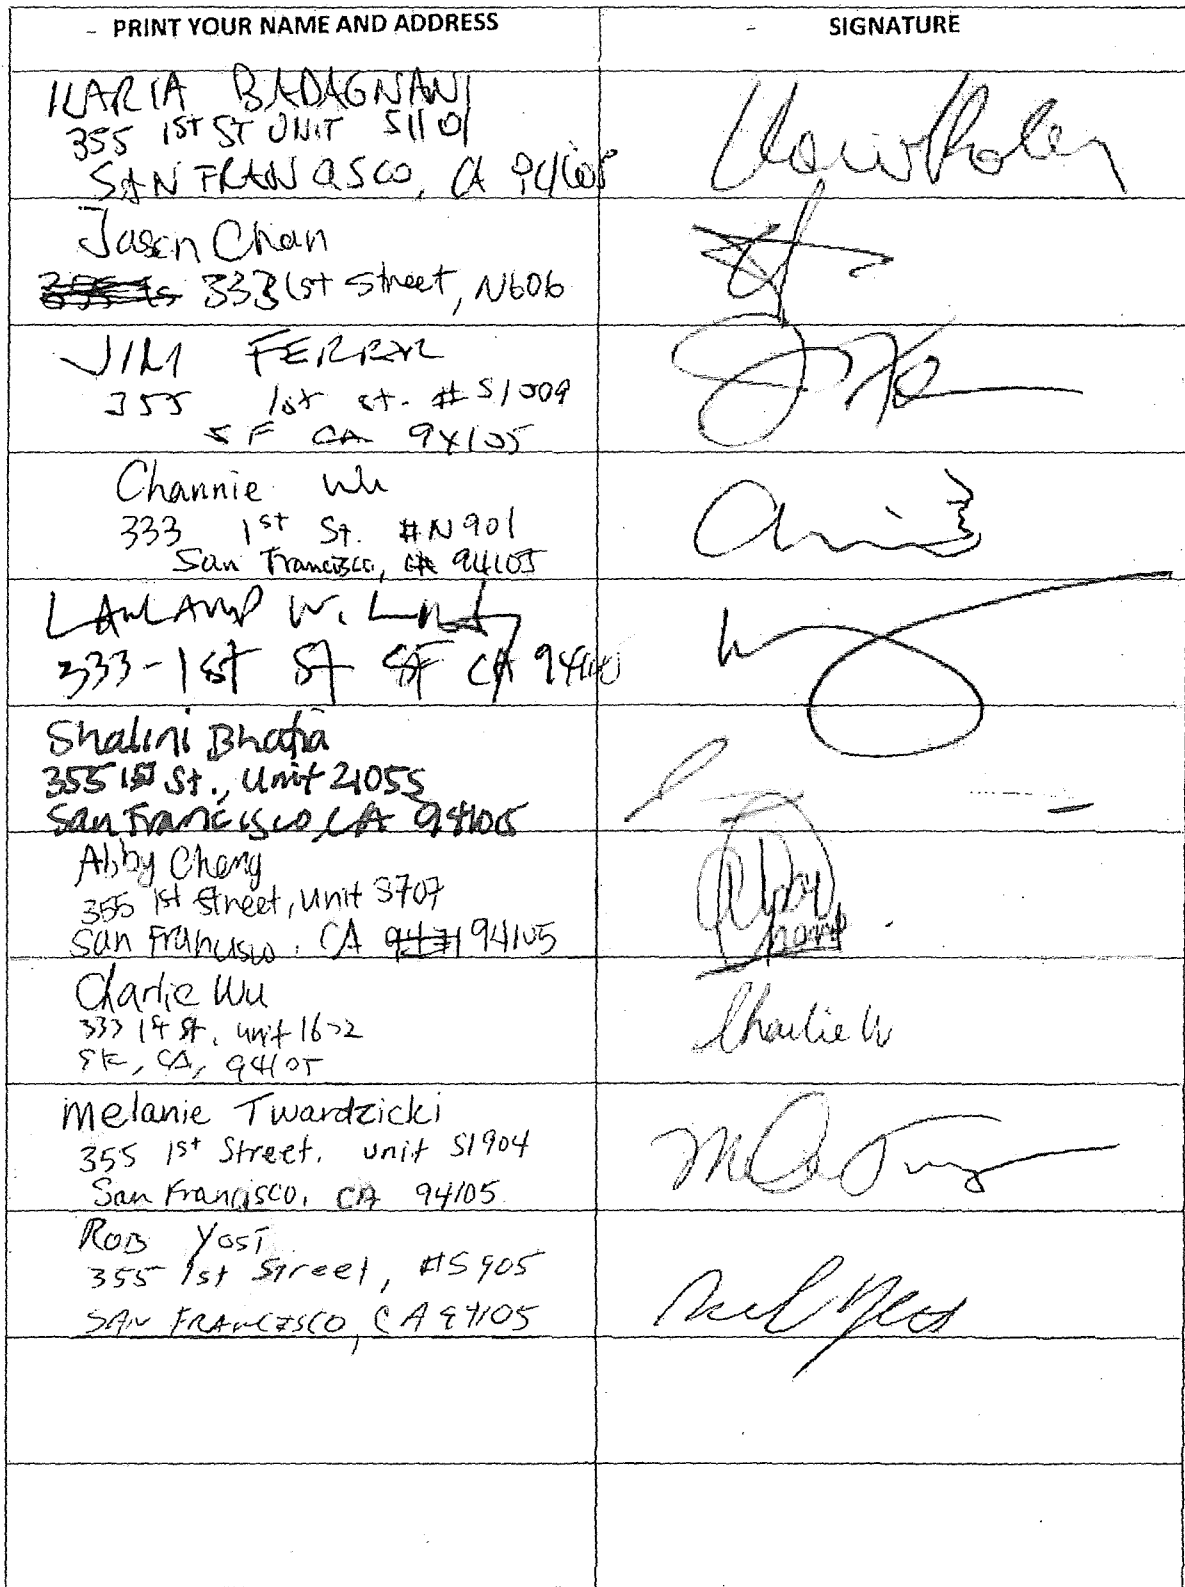 PRINT YOUR NAME AND ADDRESS
SIGNATURE
ILARIA BADAGNANI
355 1ST ST UNIT S1101
SAN FRANCISCO, CA 94105
Jason Chan
333 1st Street, N606
JIM FERRAR
355 1st st. # S1009
SF CA 94105
Channie Wu
333 1st St. #N901
San Francisco, CA 94105
W.
333-1st St SF CA 94105
Shalini Bhatia
355 1st St., Unit
San Francisco, CA 94105
Abby Chang
355 1st Street, Unit S707
San Francisco, CA 94105
Abby
Charlie Wu
333 1st St, unit
SF, CA, 94105
Charlie W
Melanie Twardzicki
355 1st Street, unit S1904
San Francisco, CA 94105
ROB YOST
355 1st Street, #S905
SAN FRANCISCO, CA 94105